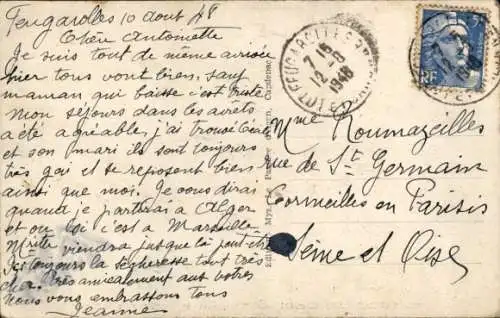 Feugarolles 10 aout 48
Chère Antoinette
Je suis tout de même arrivée
hier tous vont bien, sauf
maman qui baisse c'est triste
Mon séjours dans les
a été agréable, j'ai trouvé
et son mari ils sont toujours
très gai et se reposent bien
ainsi que moi. Je vous dirai
quand je partirai à Alger
et ou si c'est à Marseille
viendra jusque là peut-être
toujours la sécheresse tout très
cher. Très amicalement aux votres
Nous vous embrassons tous
Jeanne
FEUGAROLLES
7 15
12-8
1948
LOT ET
RF
Mme Roumazeilles
rue de St Germain
Cormeilles en Parisis
Seine et Oise